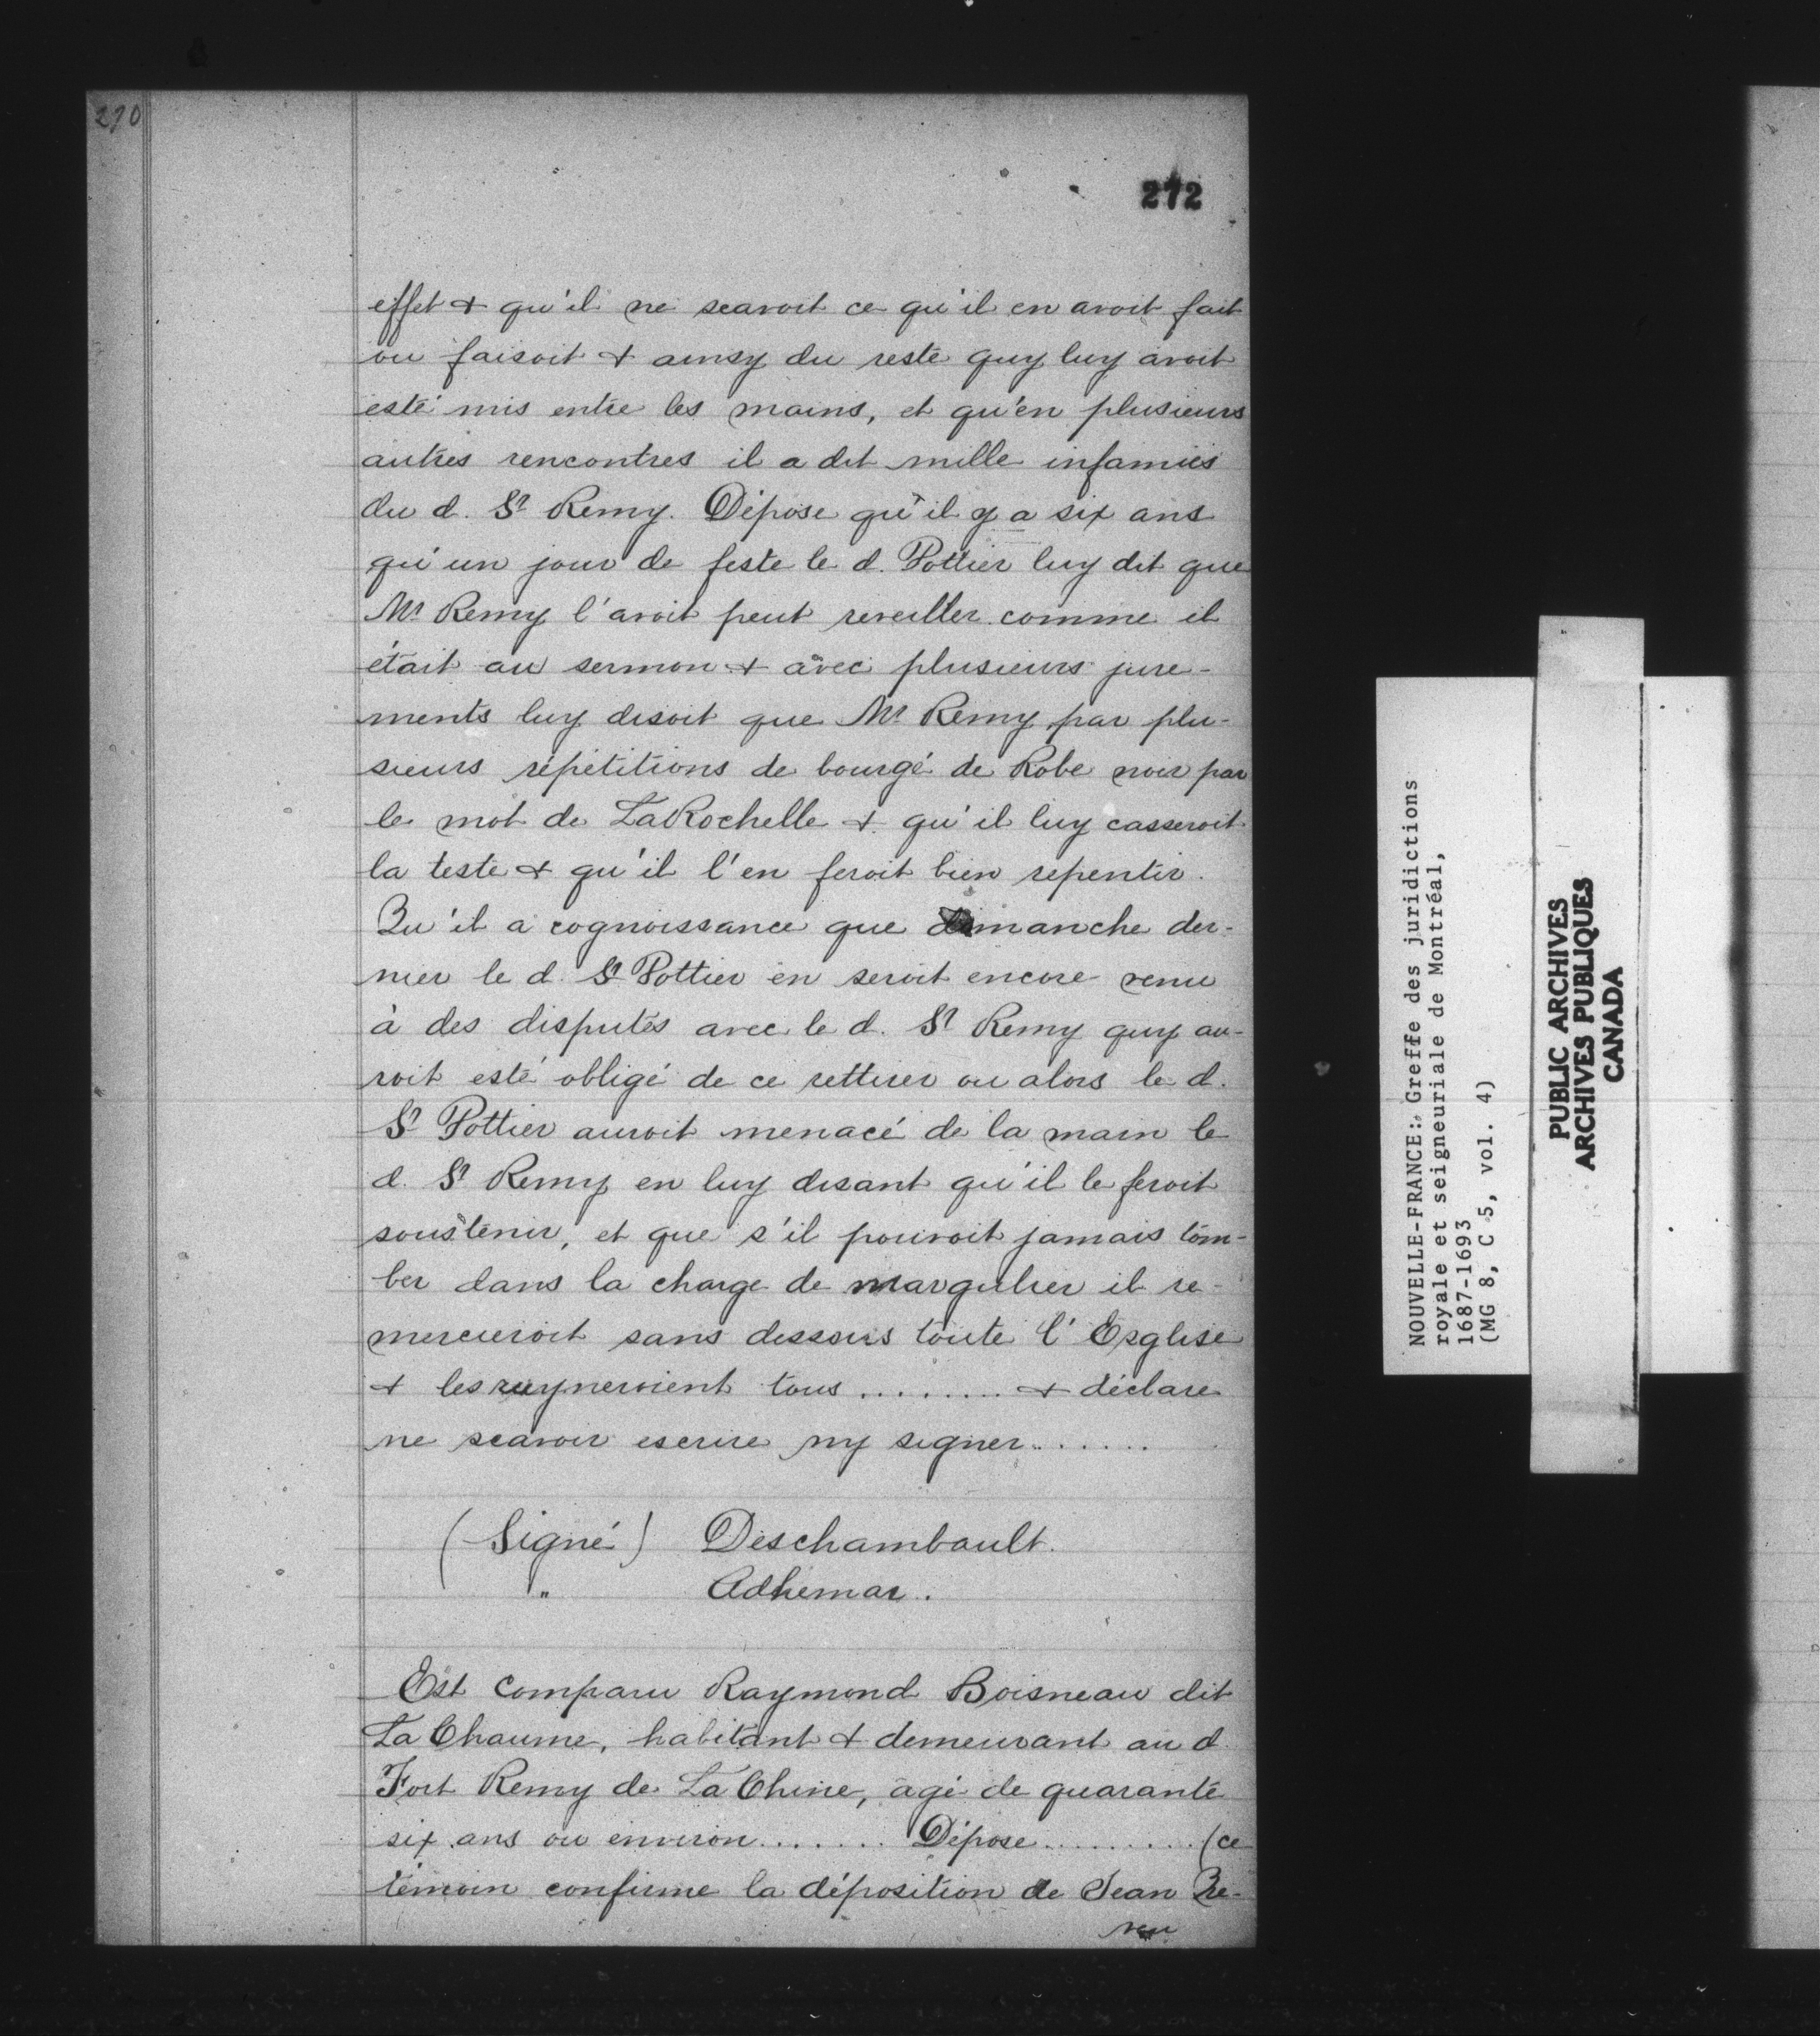 270
272
effet & qu'il ne scavoit ce qu'il en avoit fait
ou faisoit & ainsy du reste quy luy avoit
esté mis entre les mains, et qu'en plusieurs
autres rencontres il a dit mille infamies
du d. Sr Remy. Dépose qu'il y a six ans
qu'un jour de feste le d. Pottier luy dit que
Mr Remy l'avoit peut reveiller comme il
était au sermon & avec plusieurs jure-
ments luy disoit que Mr Remy par plu-
sieurs répétitions de bougé de Robe noir par
le mot de LaRochelle & qu'il luy casseroit
la teste & qu'il l'en feroit bien repentir.
Qu'il a cognoissance que dimanche der-
nier le d. Sr Pottier en seroit encore venu
à des disputes avec le d. Sr Remy quy au-
roit esté obligé de ce rettirer ou alors le d.
Sr Pottier auroit menacé de la main le
d. Sr Remy en luy disant qu'il le feroit
soustenir, et que s'il pouvoit jamais tom-
ber dans la charge de marguiller il re-
mercieroit sans dessous toute l'Esglise
& les ruyneroient tous ........ & déclare
ne scavoir escrire ny signer .......
(Signé) Deschambault.
" Adhemar.
Est comparu Raymond Boisneau dit
La Chaume, habitant & demeurant au d
Fort Remy de La Chine, agé de quarante
six ans ou environ ....... Dépose ......... (ce
témoin confirme la déposition de Jean Que-
neu
NOUVELLE-FRANCE: Greffe des juridictions
royale et seigneuriale de Montréal,
1687-1693
(MG 8, C 5, vol. 4)
PUBLIC ARCHIVES
ARCHIVES PUBLIQUES
CANADA